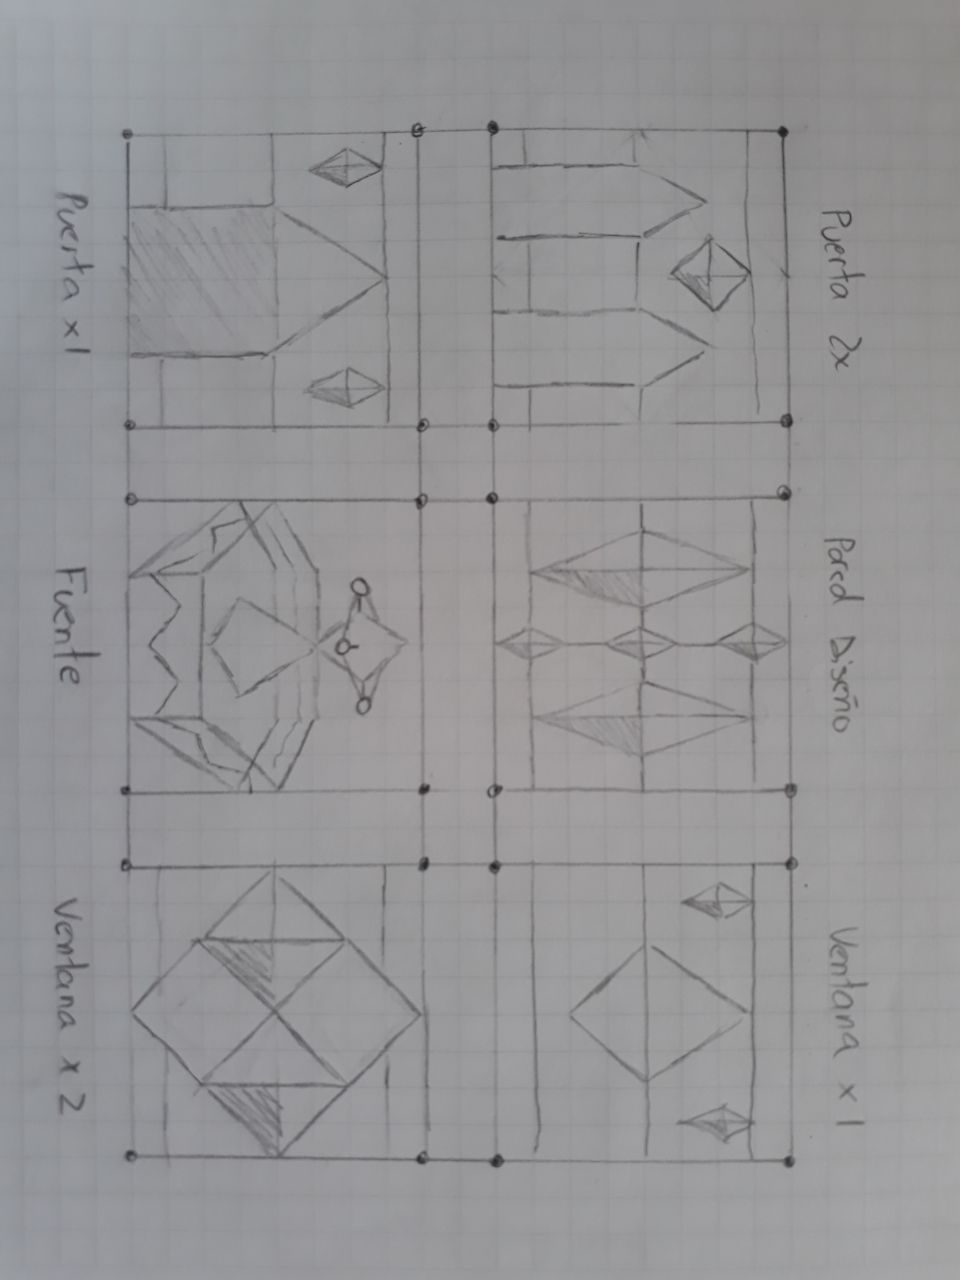 Puerta 2x
Pared Diseño
Ventana x 1
Puerta x1
Fuente
Ventana x 2